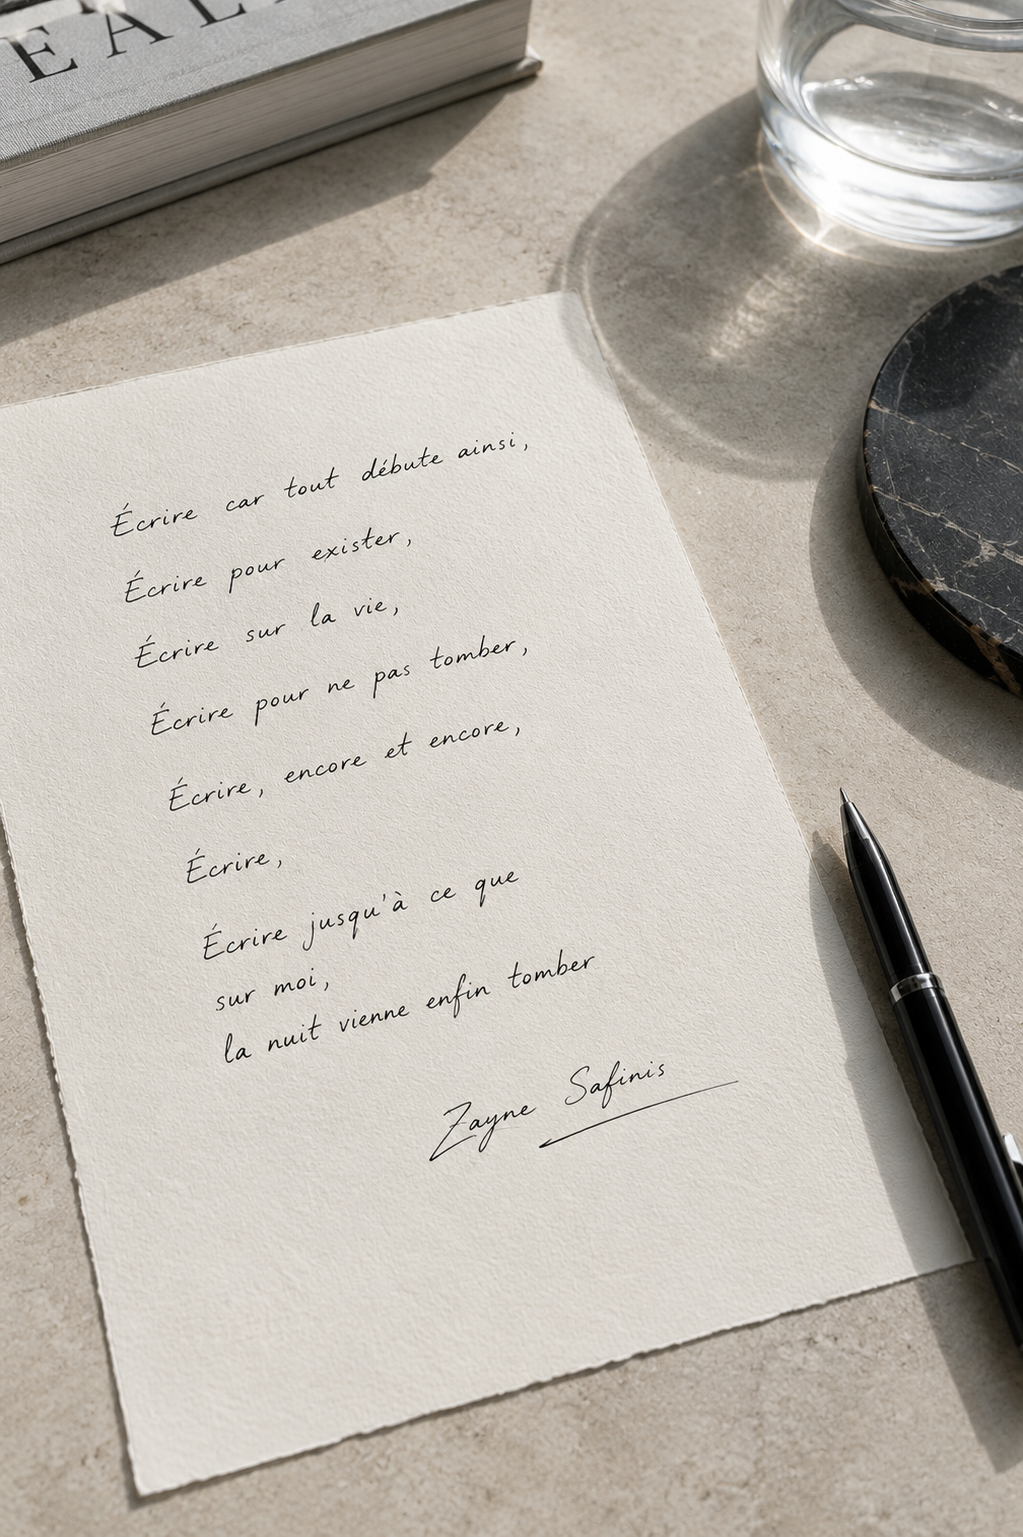 EAL
Écrire car tout débute ainsi,
Écrire pour exister,
Écrire sur la vie,
Écrire pour ne pas tomber,
Écrire, encore et encore,
Écrire,
Écrire jusqu'à ce que
sur moi,
la nuit vienne enfin tomber
Zayne Safinis